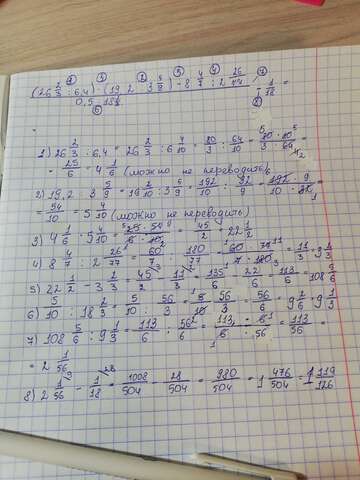 (26 2/3 : 6,4) · (19,2 : 3 5/9) - 8 4/7 : 2 26/77 - 1/18 =
0,5 : 18 2/3
1) 26 2/3 : 6,4 = 26 2/3 : 6 4/10 = 80/3 : 64/10 = 80·10/3·64 =
= 25/6 = 4 1/6 (можно не переводить)
2) 19,2 : 3 5/9 = 19 2/10 : 3 5/9 = 192/10 : 32/9 = 192·9/10·32 =
= 54/10 = 5 4/10 (можно не переводить)
3) 4 1/6 · 5 4/10 = 25·54/6·10 = 45/2 = 22 1/2
4) 8 4/7 : 2 26/77 = 60/7 : 180/77 = 60·77/7·180 = 11/3 =
5) 22 1/2 - 3 2/3 = 45/2 - 11/3 = 135/6 - 22/6 = 113/6 =
6) 5/10 : 18 2/3 = 5/10 : 56/3 =
7) 108 5/6 : 9 1/3 = 113/6 : 56/6 = 113·6/6·56 = 113/56 =
= 2 1/56
8) 2 1/56 - 1/18 = 1008/504 - 28/504 = 980/504 = 1 476/504 = 1 119/126